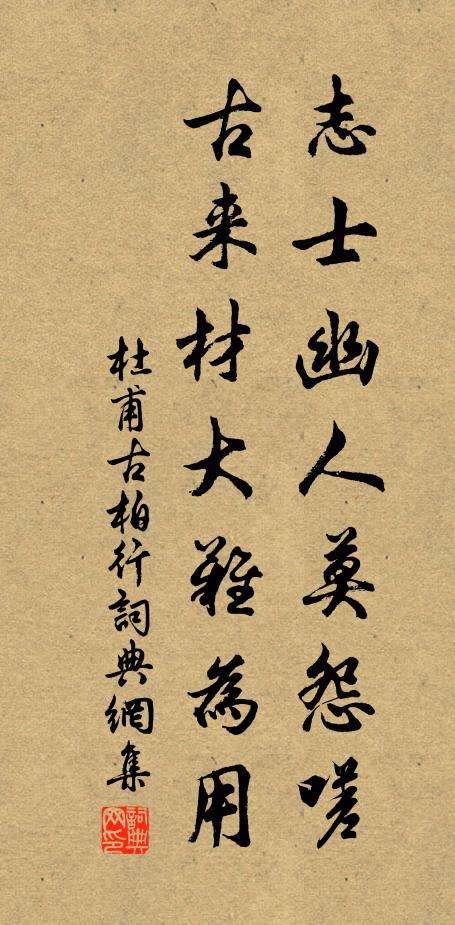 志士幽人莫怨嗟
古来材大難為用
杜甫古柏行詞典網集
詞典网印